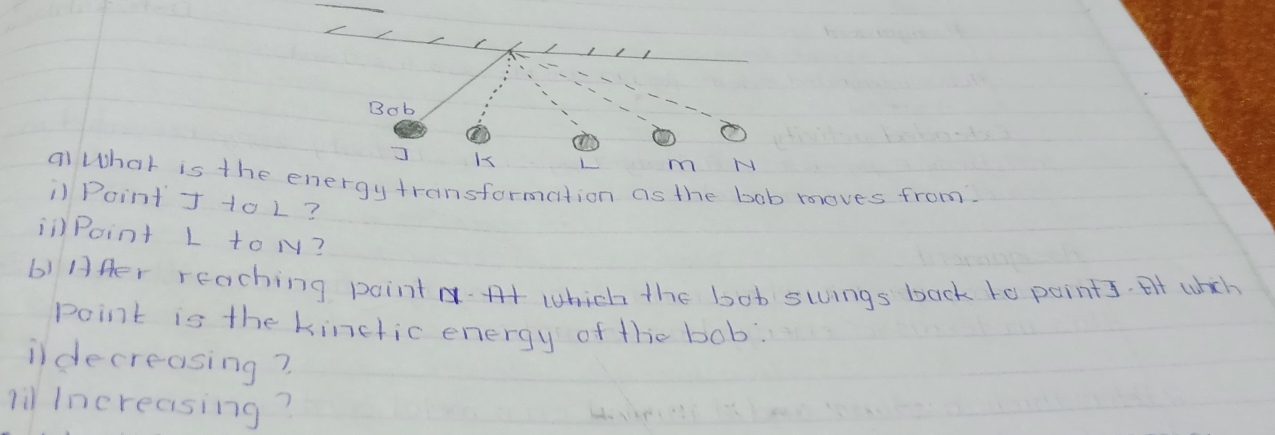 Bob
J K L M N
a) What is the energy transformation as the bob moves from:
i) Point J to L?
ii) Point L to N?
b) After reaching point N. At which the bob swings back to point J. At which
point is the kinetic energy of the bob:
i) decreasing?
ii) Increasing?